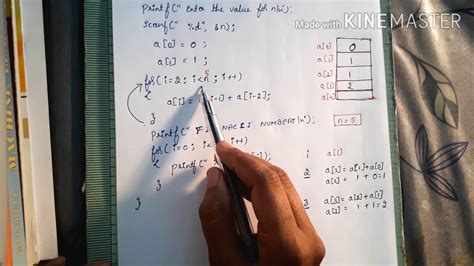 Made with KINEMASTER
printf(" enter the value for n\n");
scanf(" %d", &n);
a[0] = 0 ;
a[1] = 1 ;
5
for( i=2 ; i<n ; i++)
{
+ a[i-2];
}
printf("
NUMBERS\n");
for( i=0 ;
i++)
{
printf("
}
}
a[0] 0
a[1] 1
a[2] 1
a[3] 2
a[4]
n = 5
i a[i]
2 a[2] = a[1]+a[0]
a[2] = 1 + 0 = 1
3 a[3] = a[2] + a[1]
a[3] = 1 + 1 = 2